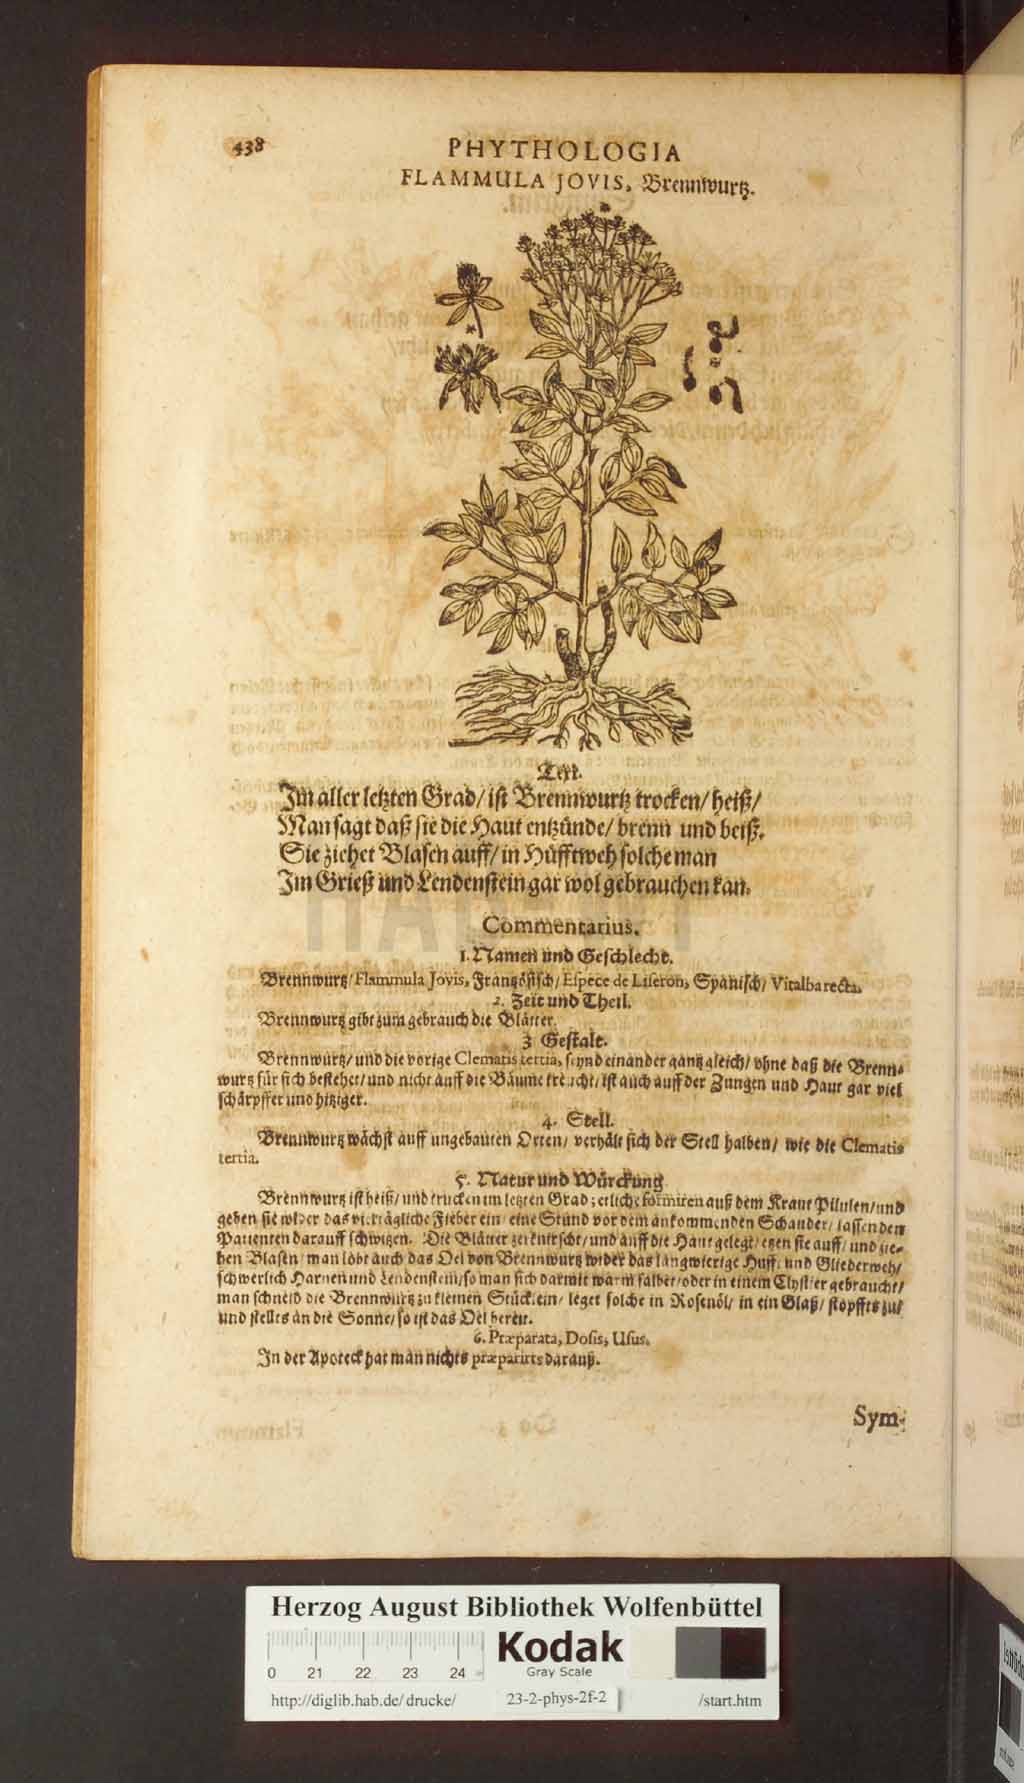 438
PHYTHOLOGIA
FLAMMULA JOVIS, Brennwurtz.
Text.
Im aller letzten Grad/ ist Brennwurtz trocken/ heiß/
Man sagt daß sie die Haut entzünde/ brenn und beiß.
Sie ziehet Blasen auff/ in Hüfftweh solche man
Im Grieß und Lendenstein gar wol gebrauchen kan.
Commentarius.
1. Namen und Geschlecht.
Brennwurtz/ Flammula Jovis, Frantzösisch/ Espece de Liseron, Spanisch/ Vitalba recta.
2. Zeit und Theil.
Brennwurtz gibt zum gebrauch die Blätter.
3 Gestalt.
Brennwurtz/ und die vorige Clematis tertia, seynd einander gantz gleich/ ohne daß die Brenn-
wurtz für sich bestehet/ und nicht auff die Bäume kreucht/ ist auch auff der Zungen und Haut gar viel
schärpffer und hitziger.
4. Stell.
Brennwurtz wächst auff ungebauten Orten/ verhält sich der Stell halben/ wie die Clematis
tertia.
5. Natur und Würckung
Brennwurtz ist heiß/ und trucken im letzten Grad; etliche formiren auß dem Kraut Pilulen/ und
geben sie wider das viertägliche Fieber ein/ eine Stund vor dem ankommenden Schauder/ lassen den
Patienten darauff schwitzen. Die Blätter zerknirscht/ und auff die Haut gelegt/ etzen sie auff/ und zie-
hen Blasen/ man lobt auch das Oel von Brennwurtz wider das langwierige Hufft und Gliederweh/
schwerlich Harnen und Lendenstein/ so man sich darmit warm salbet/ oder in einem Clystier gebraucht/
man schneid die Brennwurtz zu kleinen Stücklein/ leget solche in Rosenöl/ in ein Glaß/ stopffts zu/
und stellts an die Sonne/ so ist das Oel bereit.
6. Præparata, Dosis, Usus.
In der Apoteck hat man nichts præparirts darauß.
Sym-
HAB
Herzog August Bibliothek Wolfenbüttel
Kodak
Gray Scale
0 21 22 23 24
http://diglib.hab.de/drucke/ 23-2-phys-2f-2 /start.htm